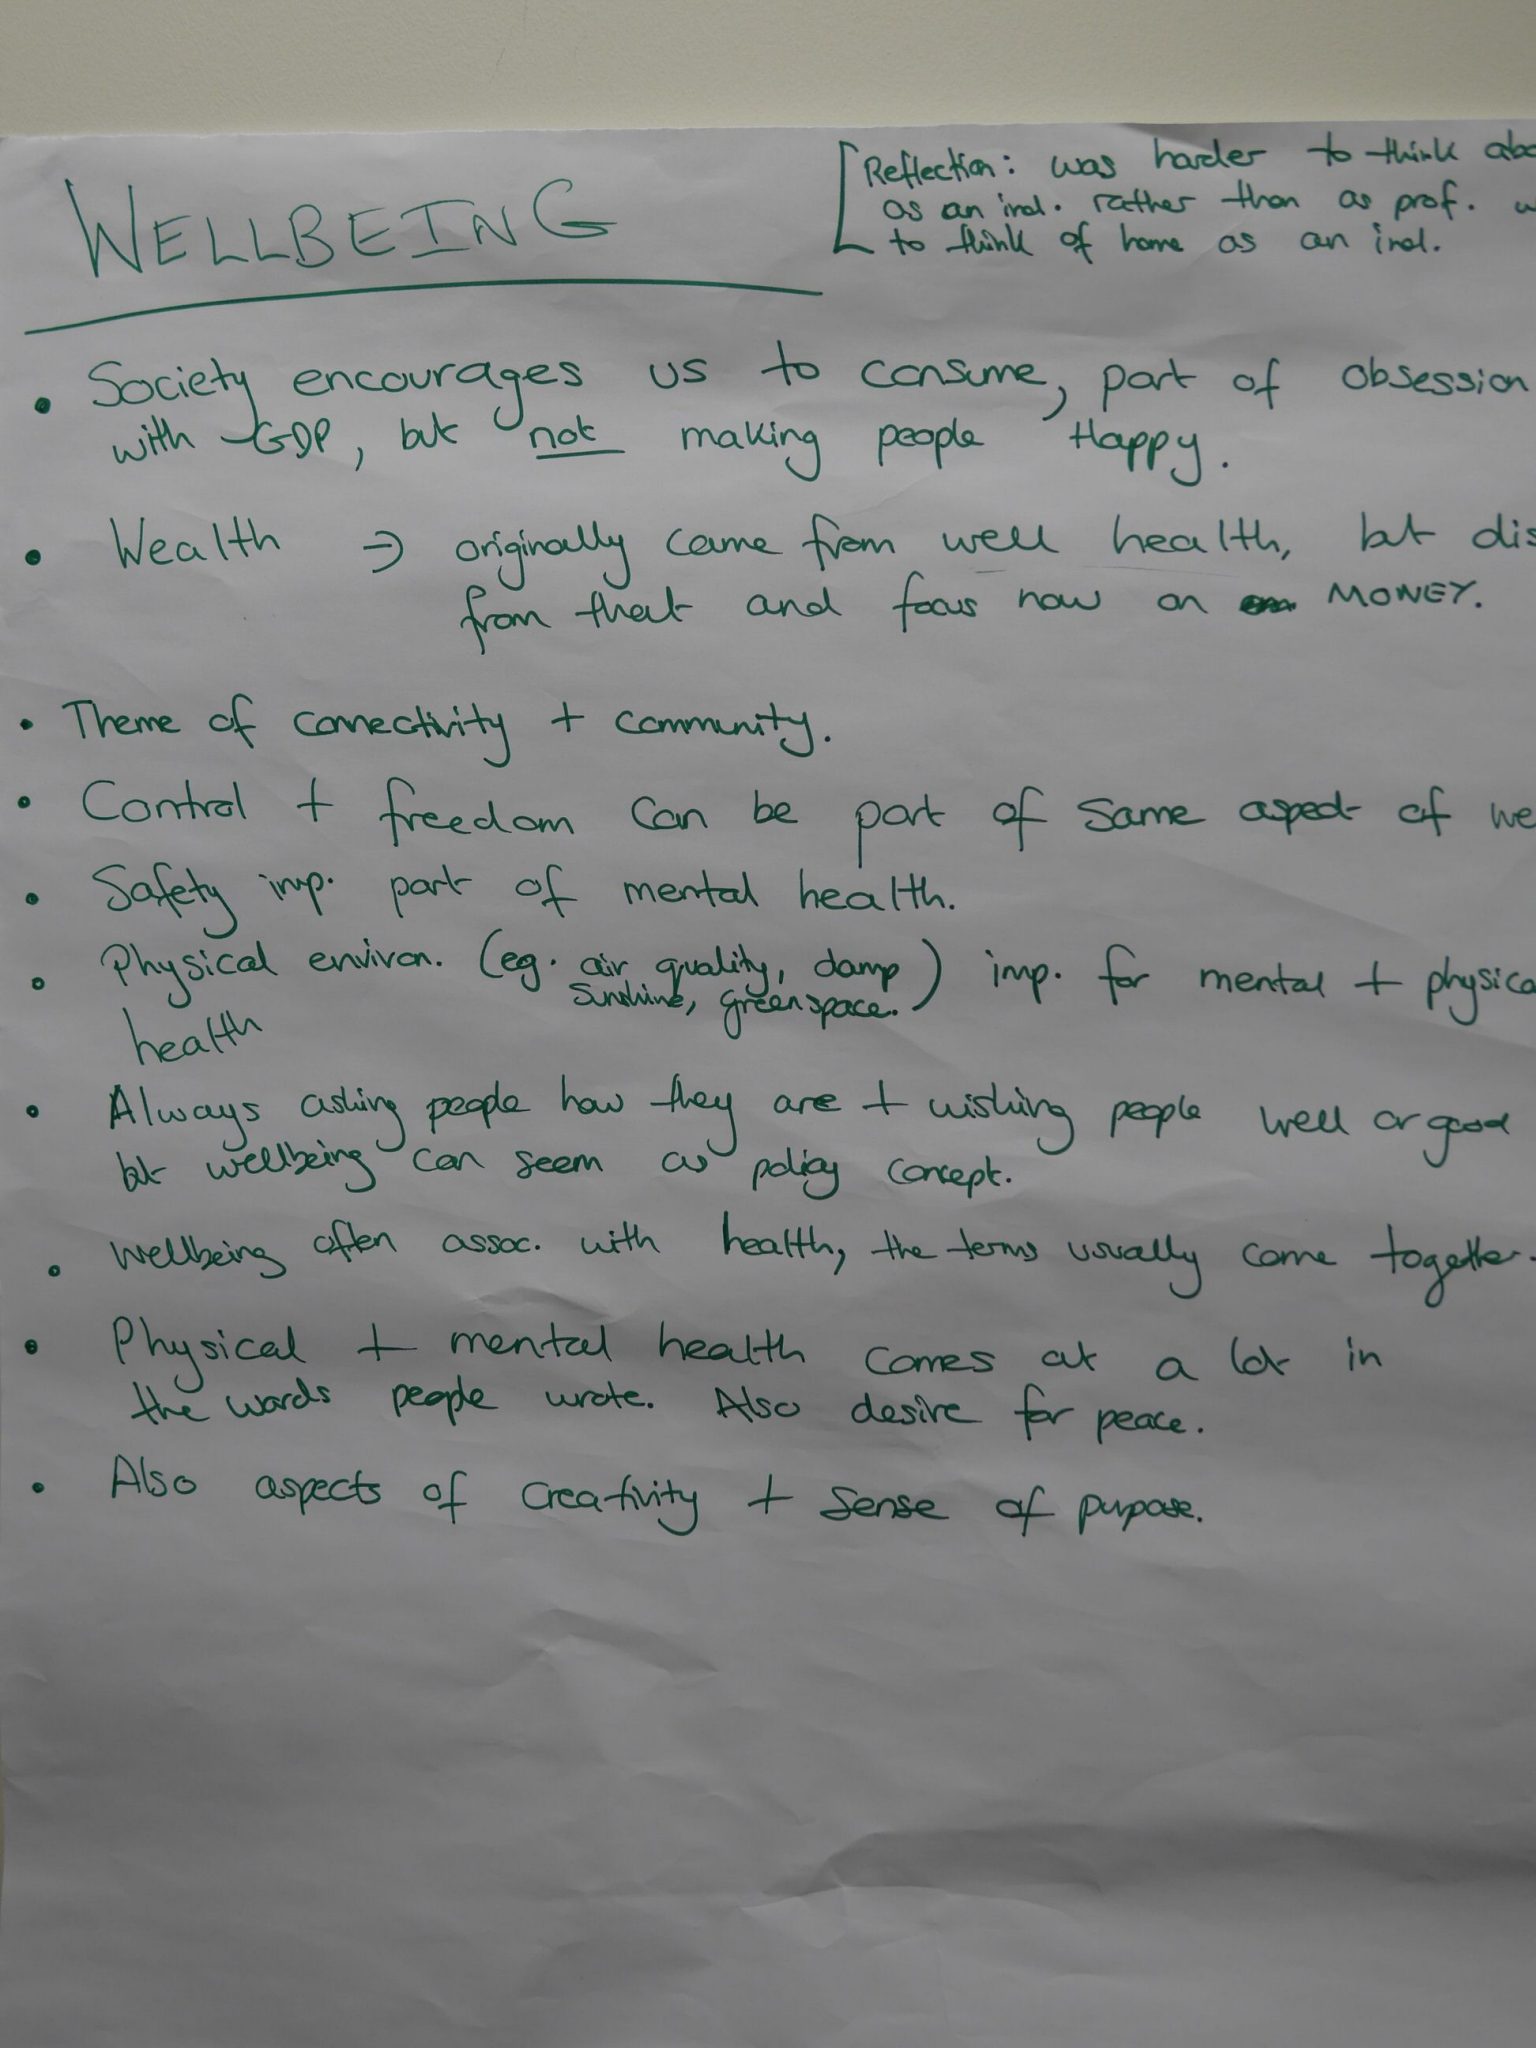 WELLBEING
Reflection: was harder to think
as an ind. rather than as prof.
to think of home as an ind.
• Society encourages us to consume, part of obsession
with GDP, but not making people Happy.
• Wealth → originally came from well health, but
from that and focus now on MONEY.
• Theme of connectivity + community.
• Control + freedom can be part of same aspect of
• Safety imp. part of mental health.
• Physical environ. (eg. air quality, damp
sunshine, greenspace.) imp. for mental + physica
health
• Always asking people how they are + wishing people well or good
but wellbeing can seem as policy concept.
• Wellbeing often assoc. with health, the terms usually come together.
• Physical + mental health comes at a lot in
the words people wrote. Also desire for peace.
• Also aspects of creativity + sense of purpose.